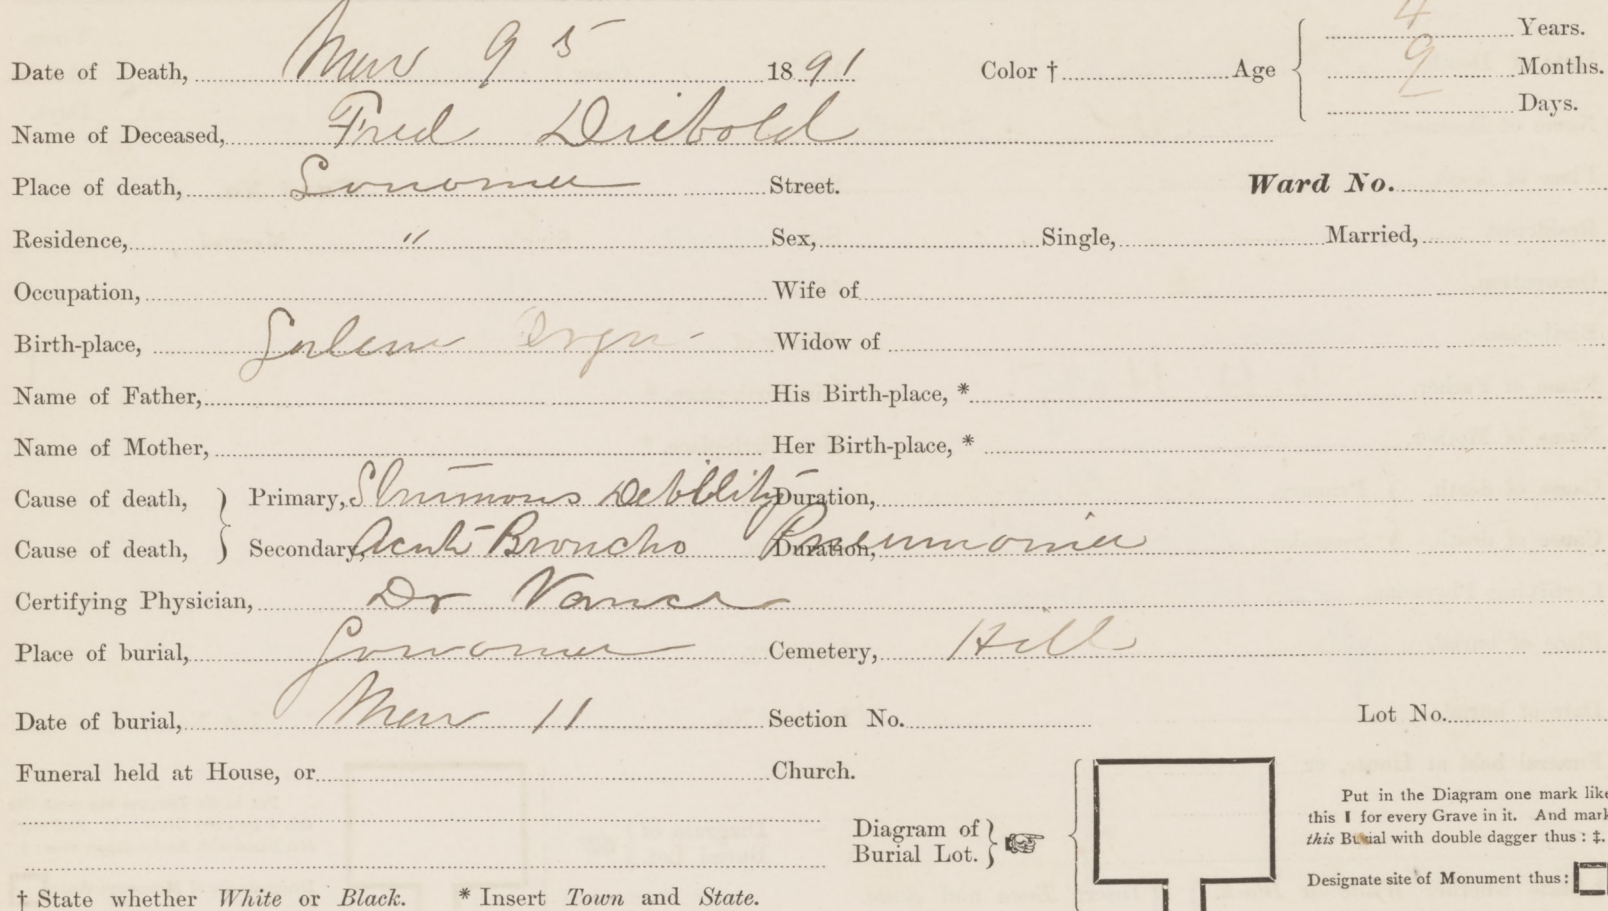 4 Years.
Date of Death, Mar 9 5 1891 Color † Age 9 Months.
Days.
Name of Deceased, Fred Diebold
Place of death, Sonoma Street. Ward No.
Residence, " Sex, Single, Married,
Occupation, Wife of
Birth-place, Salem Widow of
Name of Father, His Birth-place, *
Name of Mother, Her Birth-place, *
Cause of death, } Primary, Strumous Debility Duration,
Cause of death, } Secondary, Acute Broncho Pneumonia Duration,
Certifying Physician, Dr Vance
Place of burial, Sonoma Cemetery, Hill
Date of burial, Mar 11 Section No. Lot No.
Funeral held at House, or Church.
Diagram of Burial Lot. }
Put in the Diagram one mark like
this I for every Grave in it. And mark
this Burial with double dagger thus: ‡.
Designate site of Monument thus:
† State whether White or Black. * Insert Town and State.